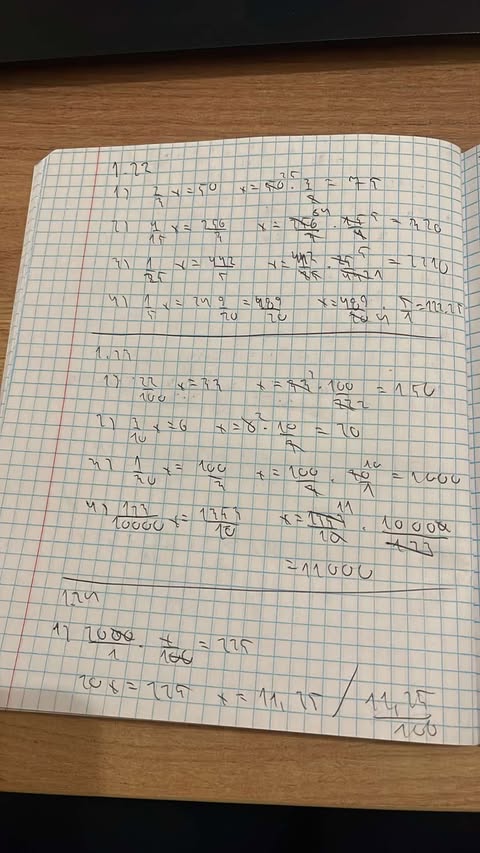 1.22
1) 2/3 x=50 x=50 25 · 3/2 = 75
2) 4/15 x= 256/3 x= 256 64/3 · 15 5/4 = 320
3) 1/25 x= 442/5 = 2210
4) 1/5 x= 24 9/20 = 489/20 x= 489/20 4 · 5/1 = 122.25
1.23
1) 22/100 x=33 x= 33 3 · 100/22 2 = 150
2) 3/10 x=6 x=6 2 · 10/3 = 20
3) 1/30 x= 100/3 x= 100/3 · 30 10/1 = 1000
4) 123/10000 x= 1353/10 x= 1353 11/10 · 10000/123
=11000
1.24
1) 2000/1 · x/100 = 225
20x=225 x=11,25 / 11,25/100